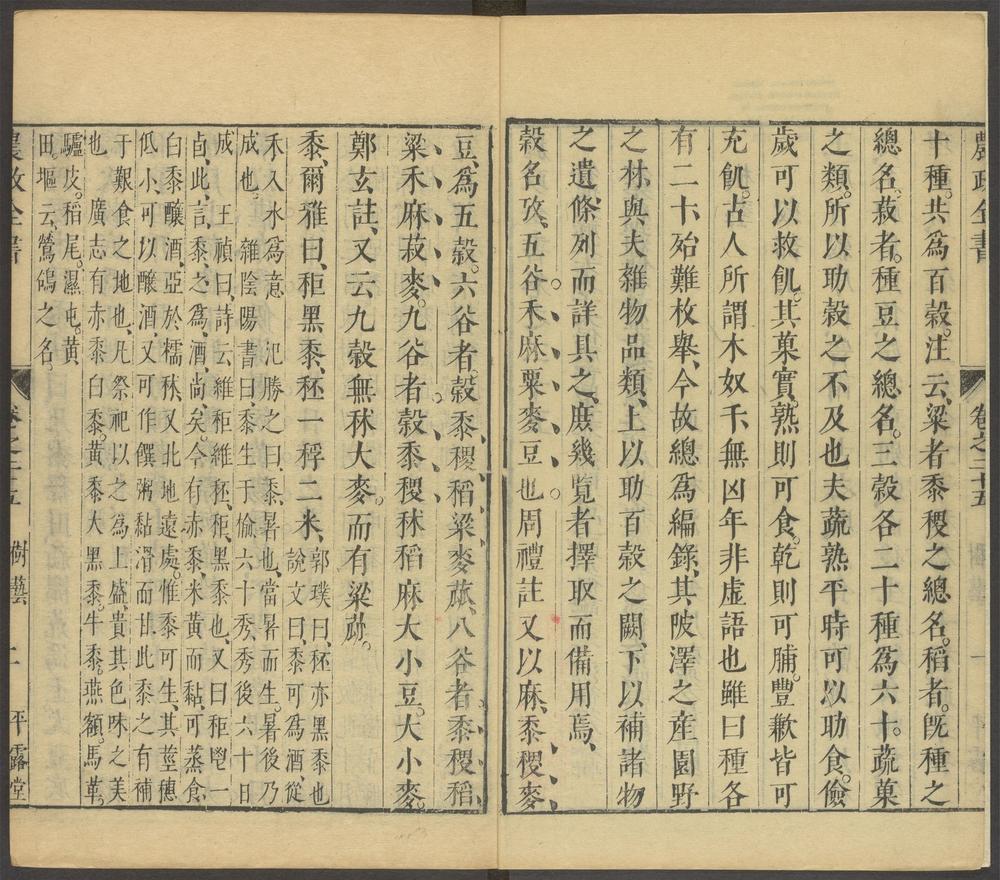 農政全書 卷之二十五
十種。共爲百穀。注云、粱者黍稷之總名。稻者。旣種之
總名。菽者。種豆之總名。三穀各二十種爲六十。蔬菓
之類。所以助穀之不及也夫蔬熟平時可以助食。儉
歲可以救飢。其菓實。熟則可食。乾則可脯。豐歉皆可
充飢。古人所謂木奴千、無凶年非虛語也雖曰種各
有二十、殆難枚舉、今故總爲編錄、其陂澤之産園野
之材、與夫雜物品類、上以助百穀之闕、下以補諸物
之遺、條列而詳具之、庶幾覽者擇取而備用焉、
穀名攷、五谷禾麻粟麥豆也周禮註又以麻、黍稷麥
豆、爲五穀。六谷者。穀、黍稷稻粱麥苽、八谷者。黍稷稻
粱禾麻菽麥。九谷者穀黍稷秫稻麻大小豆。大小麥。
鄭玄註、又云九穀無秫大麥。而有粱苽。
黍、爾雅曰、秬黑黍、秠一稃二米、郭璞曰、秠亦黑黍也
說文曰、黍可為酒、從
禾入水為意 氾勝之曰、黍暑也、當暑而生。暑後乃
成也。 雜陰陽書曰黍生于楡六十秀、秀後六十日
成 王禎曰、詩云維秬維秠、秬、黑黍也、又曰秬鬯一
卣、此言黍之為酒、尚矣。今有赤黍、米黃而黏、可蒸食、
白黍釀酒、亞於糯秫、又北地遠處。惟黍可生、其莖穗
低小、可以釀酒、又可作饌粥黏滑而甘、此黍之有補
于艱食之地也、凡祭祀以之為上盛、貴其色味之美
也 廣志有赤黍白黍。黃黍大黑黍。牛黍。燕頷。馬革。
驢皮。稻尾。濕屯。黃
田堰云、鶯鴿之名、
農政全書 卷之二十五 樹藝 二 平露堂